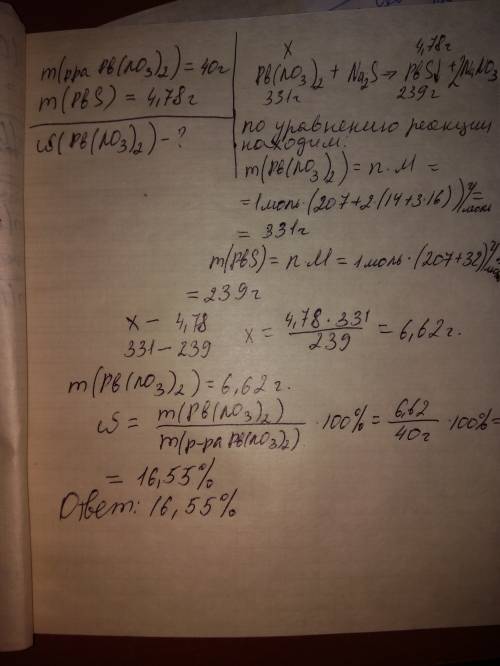 m(р-ра Pb(NO3)2) = 40г
m(PbS) = 4,78г
ω(Pb(NO3)2) - ?
x 4,78г
Pb(NO3)2 + Na2S → PbS↓ + 2NaNO3
331г 239г
по уравнению реакции
находим:
m(Pb(NO3)2) = n·M =
= 1моль·(207+2·(14+3·16))г/моль
= 331г
m(PbS) = n·M = 1моль·(207+32)г/моль
= 239г
x — 4,78
331 — 239
x = 4,78·331/239 = 6,62г.
m(Pb(NO3)2) = 6,62г.
ω = m(Pb(NO3)2)/m(р-ра Pb(NO3)2) ·100% = 6,62/40г ·100% =
= 16,55%
Ответ: 16,55%